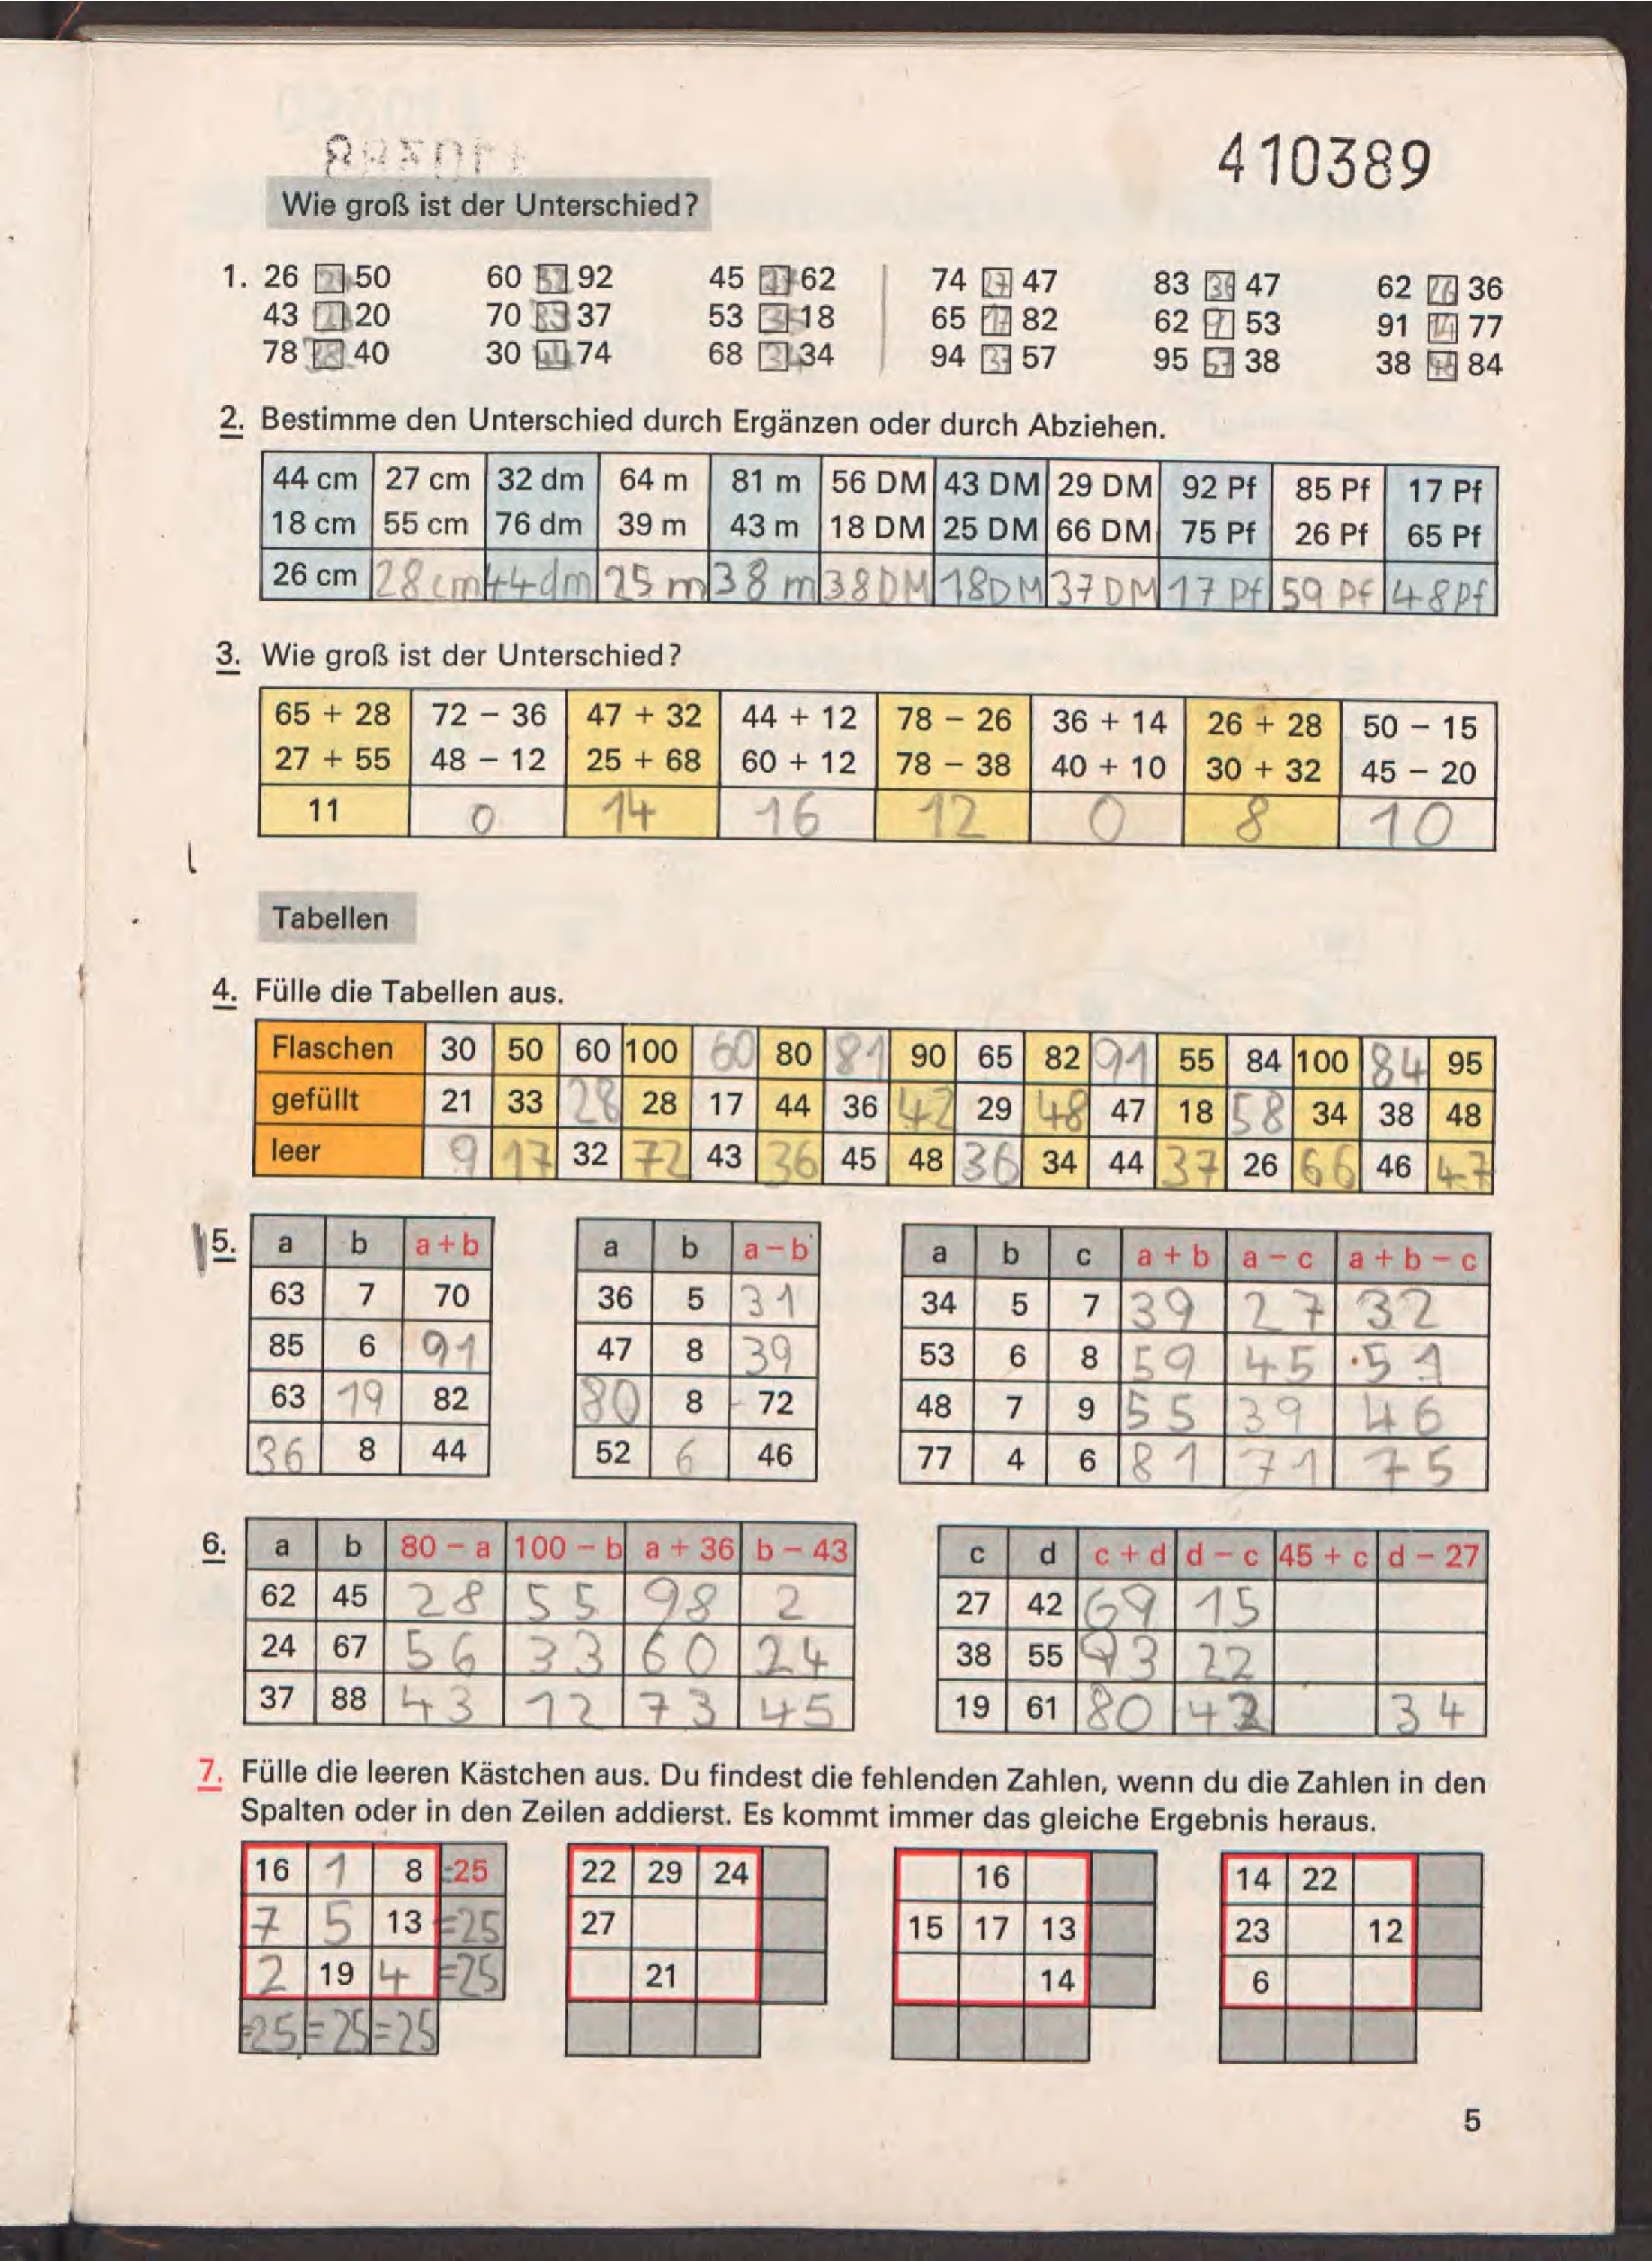 410389
Wie groß ist der Unterschied?
1. 26 50 60 32 92 45 62 74 27 47 83 36 47 62 26 36
43 20 70 33 37 53 18 65 17 82 62 9 53 91 14 77
78 38 40 30 44 74 68 34 34 94 37 57 95 57 38 38 46 84
2. Bestimme den Unterschied durch Ergänzen oder durch Abziehen.
44 cm 27 cm 32 dm 64 m 81 m 56 DM 43 DM 29 DM 92 Pf 85 Pf 17 Pf
18 cm 55 cm 76 dm 39 m 43 m 18 DM 25 DM 66 DM 75 Pf 26 Pf 65 Pf
26 cm 28 cm 44 dm 25 m 38 m 38 DM 18 DM 37 DM 17 Pf 59 Pf 48 Pf
3. Wie groß ist der Unterschied?
65 + 28 72 − 36 47 + 32 44 + 12 78 − 26 36 + 14 26 + 28 50 − 15
27 + 55 48 − 12 25 + 68 60 + 12 78 − 38 40 + 10 30 + 32 45 − 20
11 0 14 16 12 0 8 10
Tabellen
4. Fülle die Tabellen aus.
Flaschen 30 50 60 100 60 80 81 90 65 82 91 55 84 100 84 95
gefüllt 21 33 28 28 17 44 36 42 29 48 47 18 58 34 38 48
leer 9 17 32 72 43 36 45 48 36 34 44 37 26 66 46 47
5. a b a + b a b a − b a b c a + b a − c a + b − c
63 7 70 36 5 31 34 5 7 39 27 32
85 6 91 47 8 39 53 6 8 59 45 51
63 19 82 80 8 72 48 7 9 55 39 46
36 8 44 52 6 46 77 4 6 81 71 75
6. a b 80 − a 100 − b a + 36 b − 43 c d c + d d − c 45 + c d − 27
62 45 28 55 98 2 27 42 69 15
24 67 56 33 60 24 38 55 93 22
37 88 43 12 73 45 19 61 80 42 34
7. Fülle die leeren Kästchen aus. Du findest die fehlenden Zahlen, wenn du die Zahlen in den
Spalten oder in den Zeilen addierst. Es kommt immer das gleiche Ergebnis heraus.
16 1 8 =25 22 29 24 16 14 22
7 5 13 =25 27 15 17 13 23 12
2 19 4 =25 21 14 6
=25 =25 =25
5